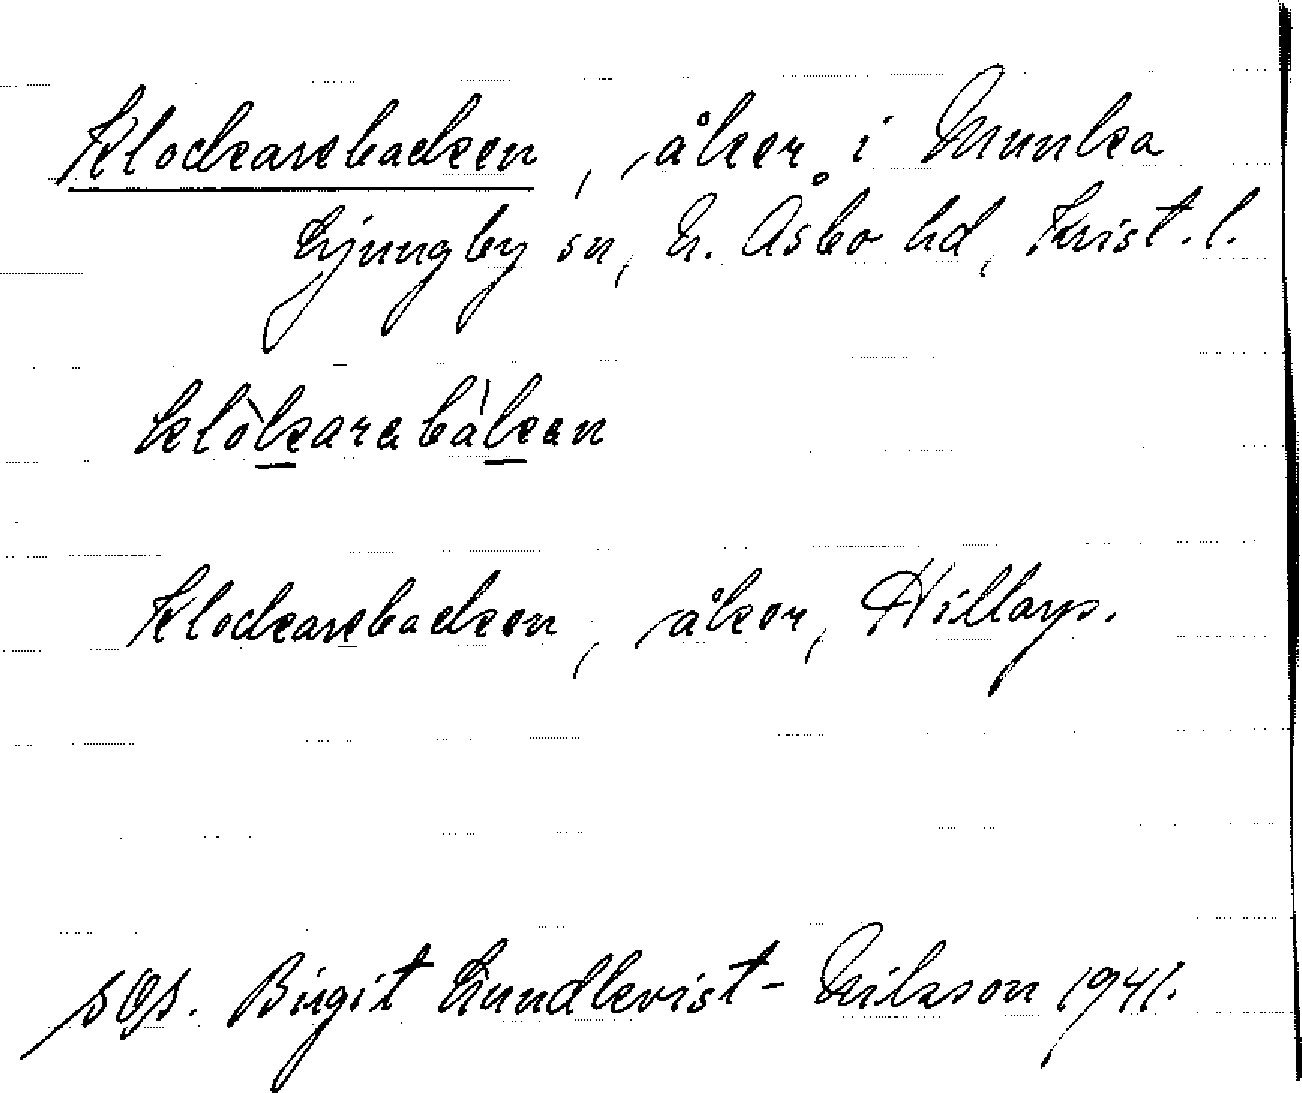 Klockarebacken, åker i Munka
Ljungby sn, N. Åsbo hd, Krist. l.
klò̱karabàḵan
Klockarebacken, åker, Hillarp.
Birgit Lundkvist-Nilsson 1941.